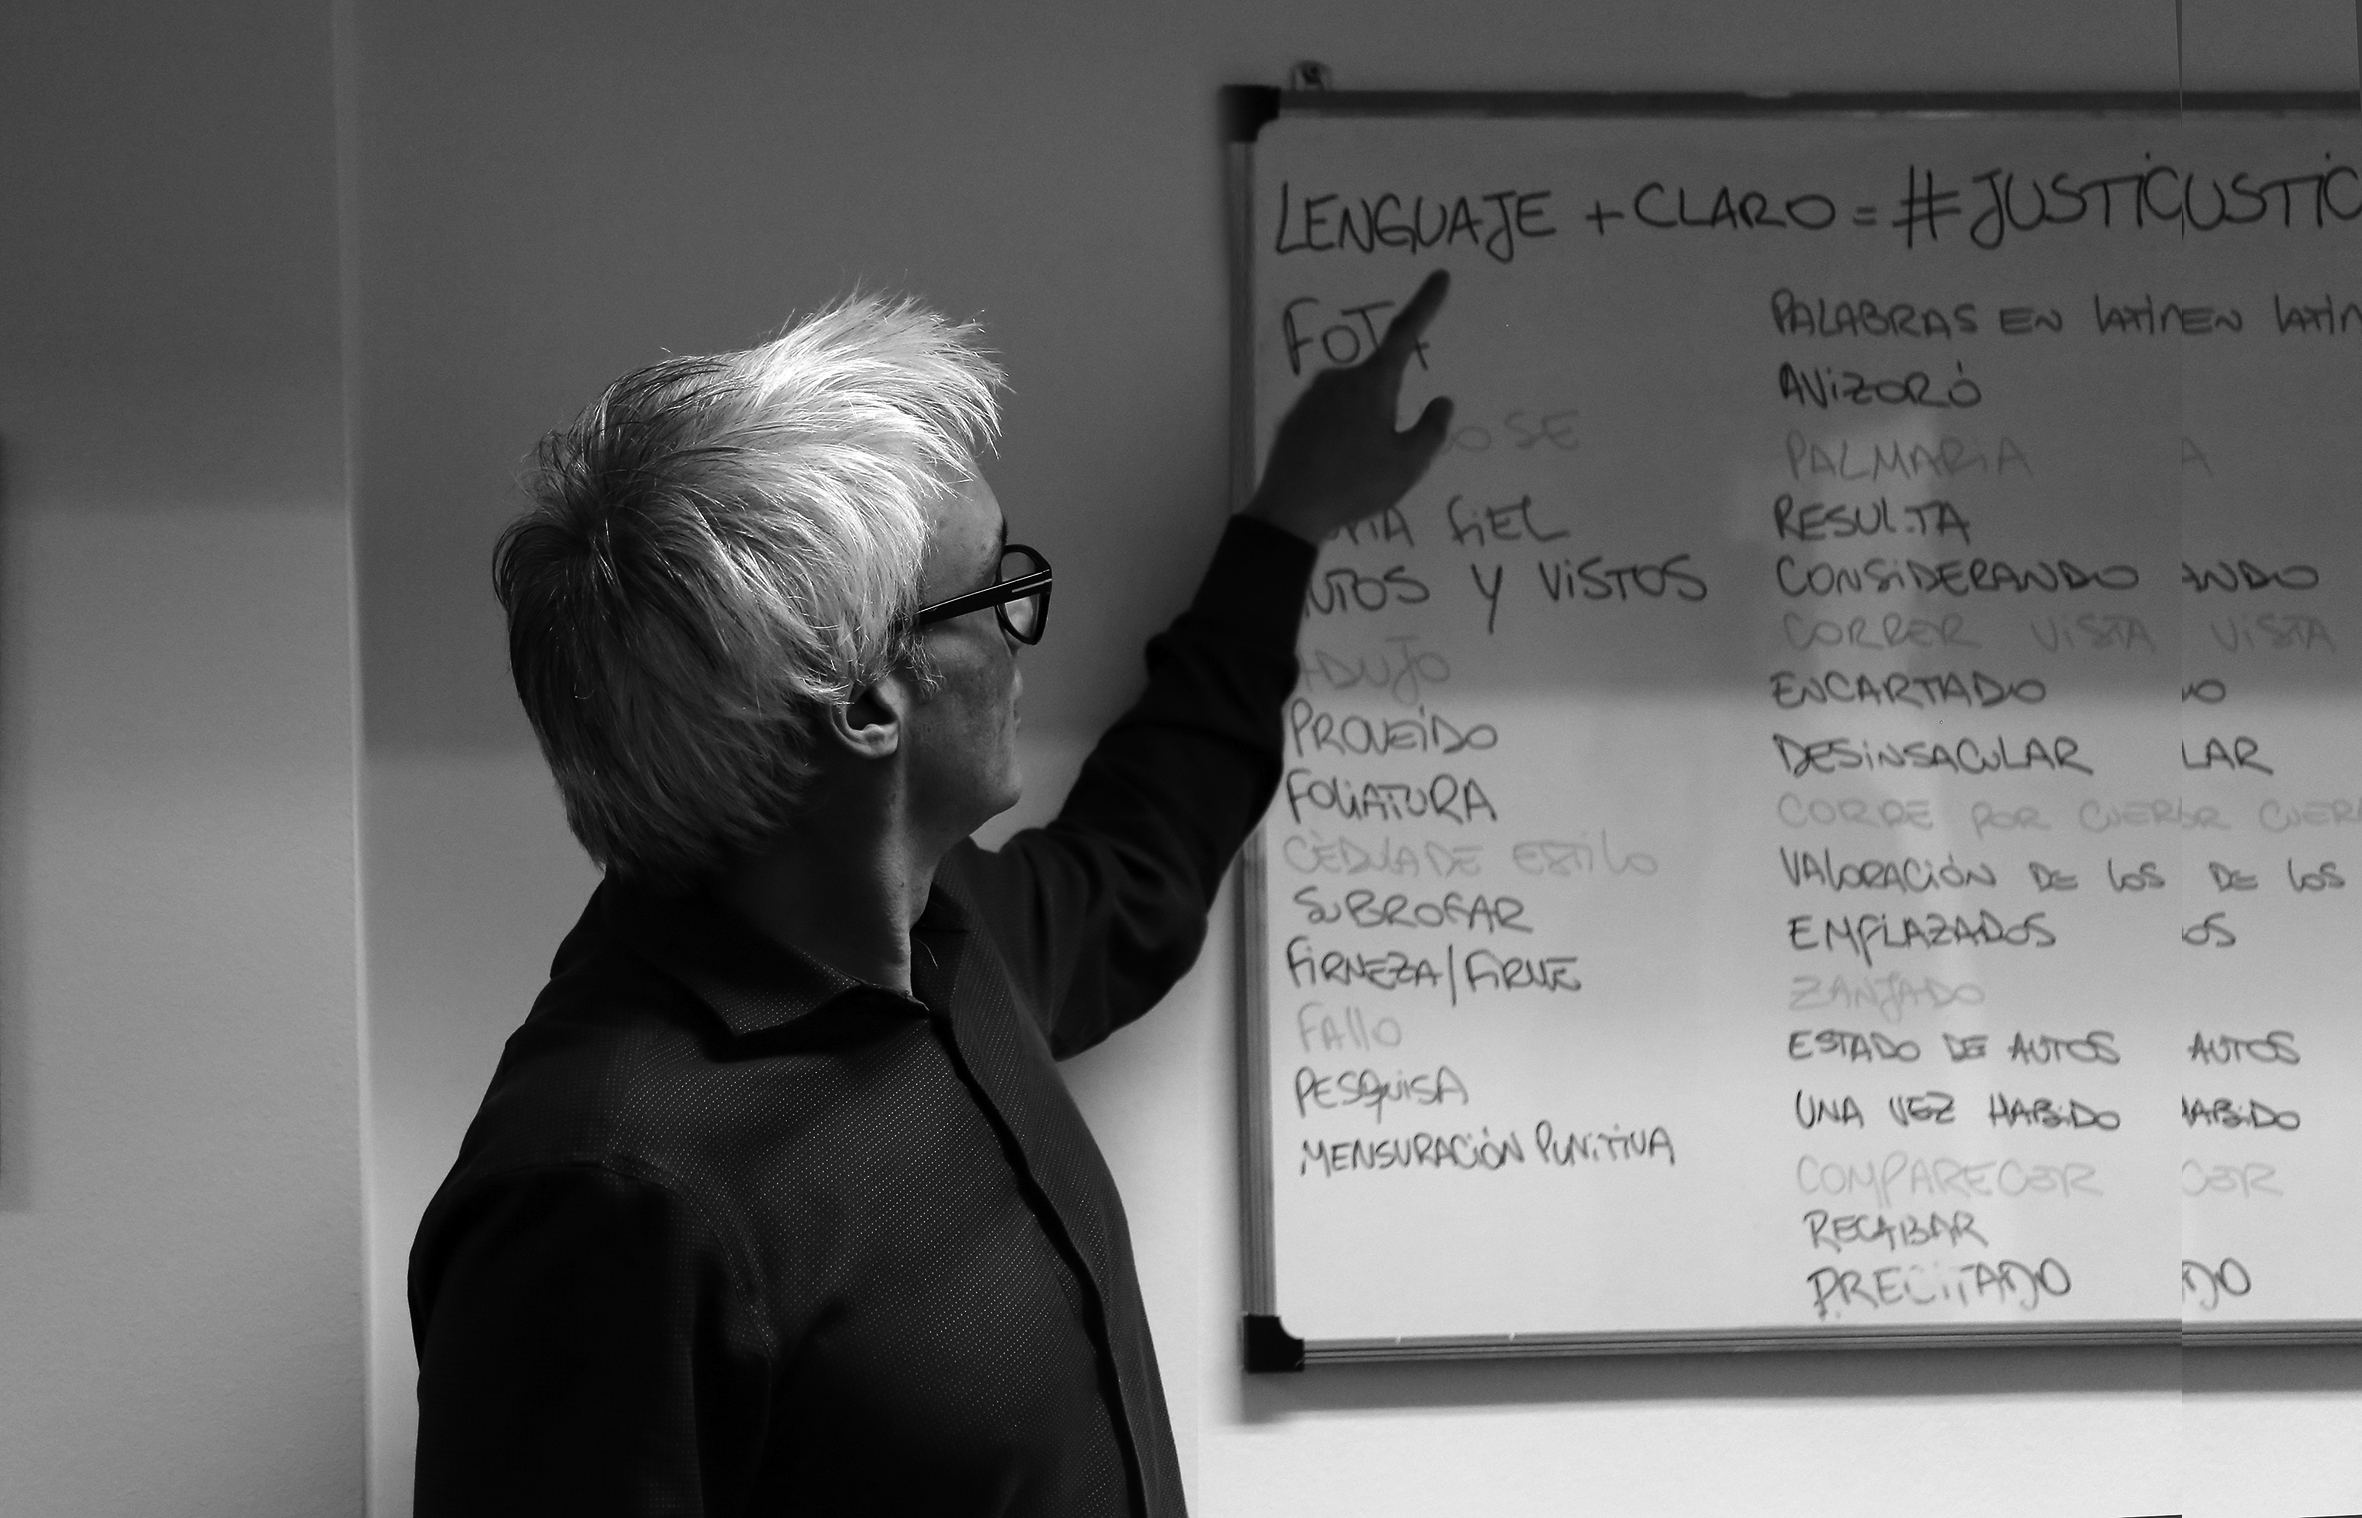 LENGUAJE + CLARO = #JUSTICUSTIC
FOJA
OSE
FIEL
AUTOS Y VISTOS
ADUJO
PROVEÍDO
FOLIATURA
CÉDULA DE ESTILO
SUBROGAR
FIRMEZA/FIRME
FALLO
PESQUISA
MENSURACIÓN PUNITIVA
PALABRAS EN LATINEN LATIN
AVIZORÓ
PALMARIA A
RESULTA
CONSIDERANDO ANDO
CORRER VISTA VISTA
ENCARTADO DO
DESINSACULAR LAR
CORRE POR CUER CUER
VALORACIÓN DE LOS DE LOS
EMPLAZADOS OS
ZANJADO
ESTADO DE AUTOS AUTOS
UNA VEZ HABIDO HABIDO
COMPARECER CER
RECABAR
PRECITADO DO